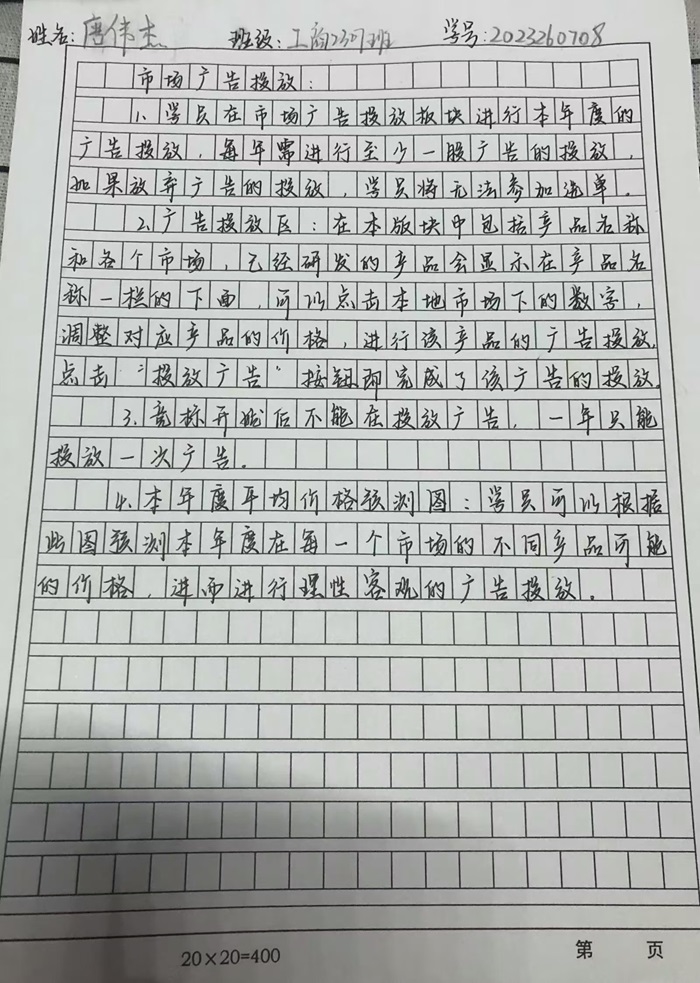 姓名:唐伟杰 班级:工商2307班 学号:2023260708
市场广告投放:
1.学员在市场广告投放板块进行本年度的
广告投放,每年需进行至少一股广告的投放,
如果放弃广告的投放,学员将无法参加选单.
2.广告投放区:在本版块中包括产品名称
和各个市场,已经研发的产品会显示在产品名
称一栏的下面,可以点击本地市场下的数字,
调整对应产品的价格,进行该产品的广告投放,
点击“投放广告”按钮即完成了该广告的投放.
3.竞标开始后不能在投放广告,一年只能
投放一次广告.
4.本年度平均价格预测图:学员可以根据
此图预测本年度在每一个市场的不同产品可能
的价格,进而进行理性客观的广告投放.
20×20=400 第 页